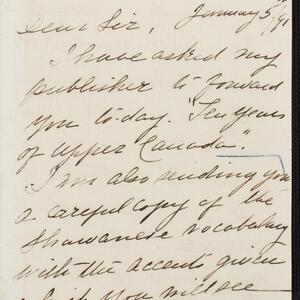 January 5th/91
Dear Sir,
I have asked my
publisher to forward
you to-day. "Ten Years
of Upper Canada".
I am also sending you
a careful copy of the
Shawanese vocabulary
with the accents given
you will see